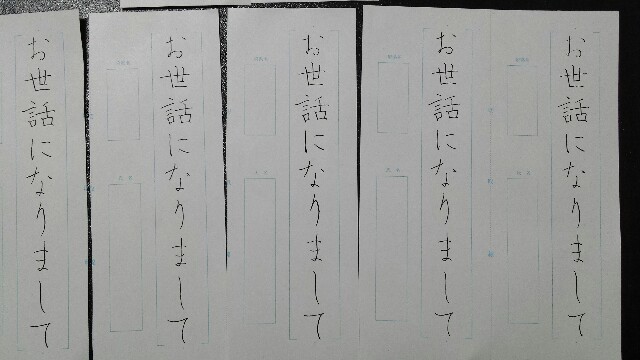 お世話になりまして
お世話になりまして
お世話になりまして
お世話になりまして
お世話になりまして